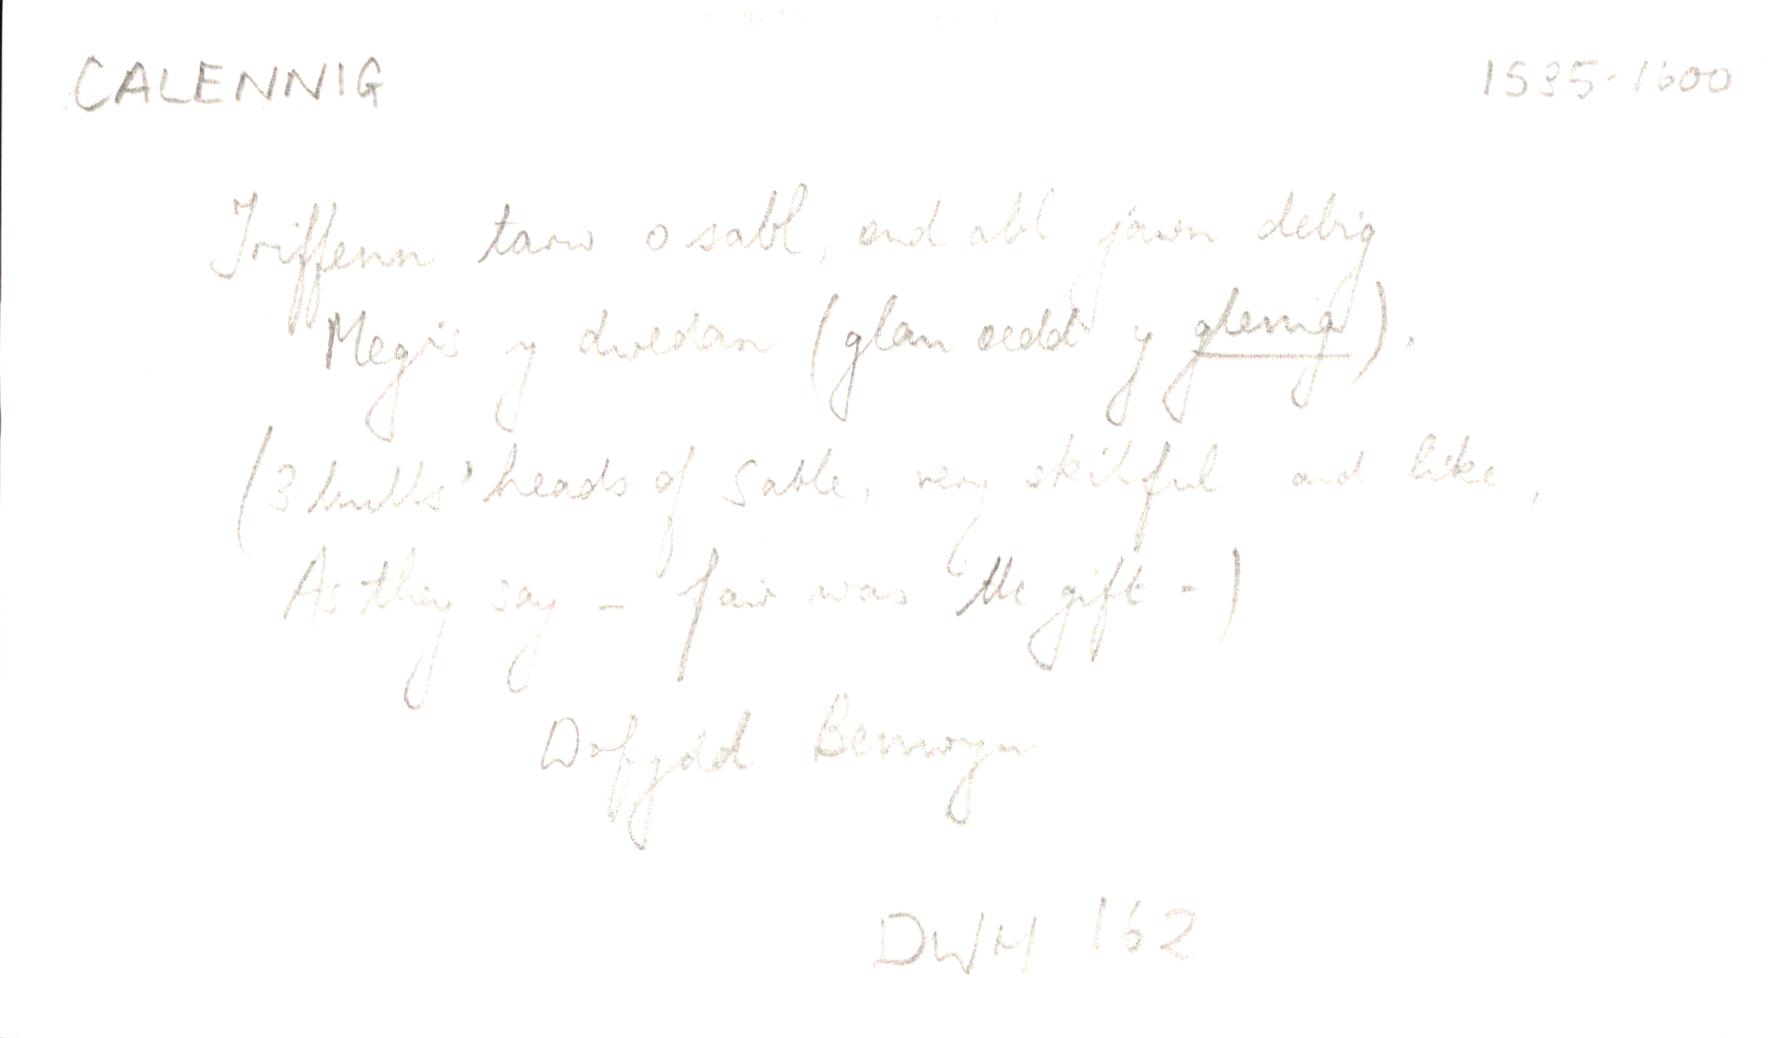 CALENNIG 1535-1600
Triffenn tarw o sabl, and abl jawn debig
Megis y dwedan (glan oedd y glenig).
(3 bulls' heads of Sable, very skilful and like,
As they say - fair was the gift -)
Dafydd Benwyn
DWH 162